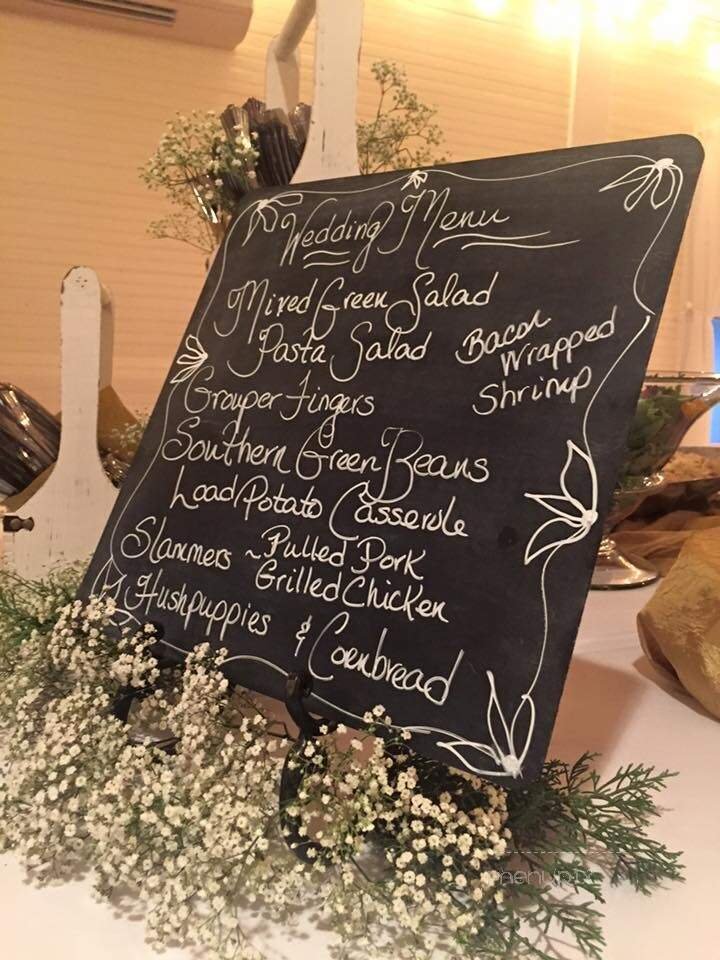 Wedding Menu
Mixed Green Salad
Pasta Salad
Bacon
Wrapped
Shrimp
Grouper Fingers
Southern Green Beans
Load Potato Casserole
Slammers ~ Pulled Pork
Grilled Chicken
Hushpuppies & Cornbread
menupix